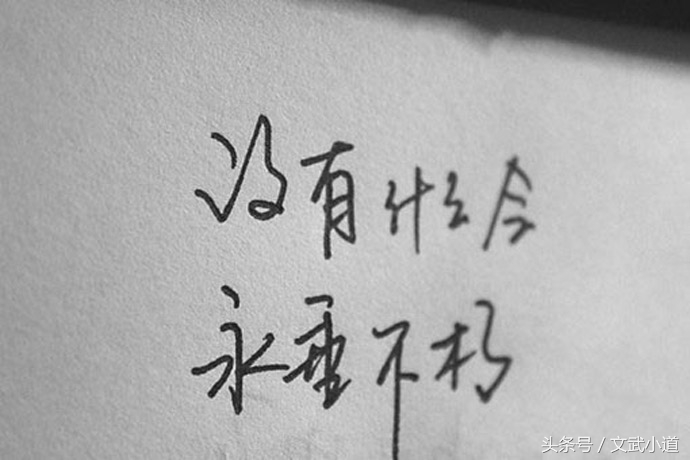 没有什么会
永垂不朽
头条号 / 文武小道